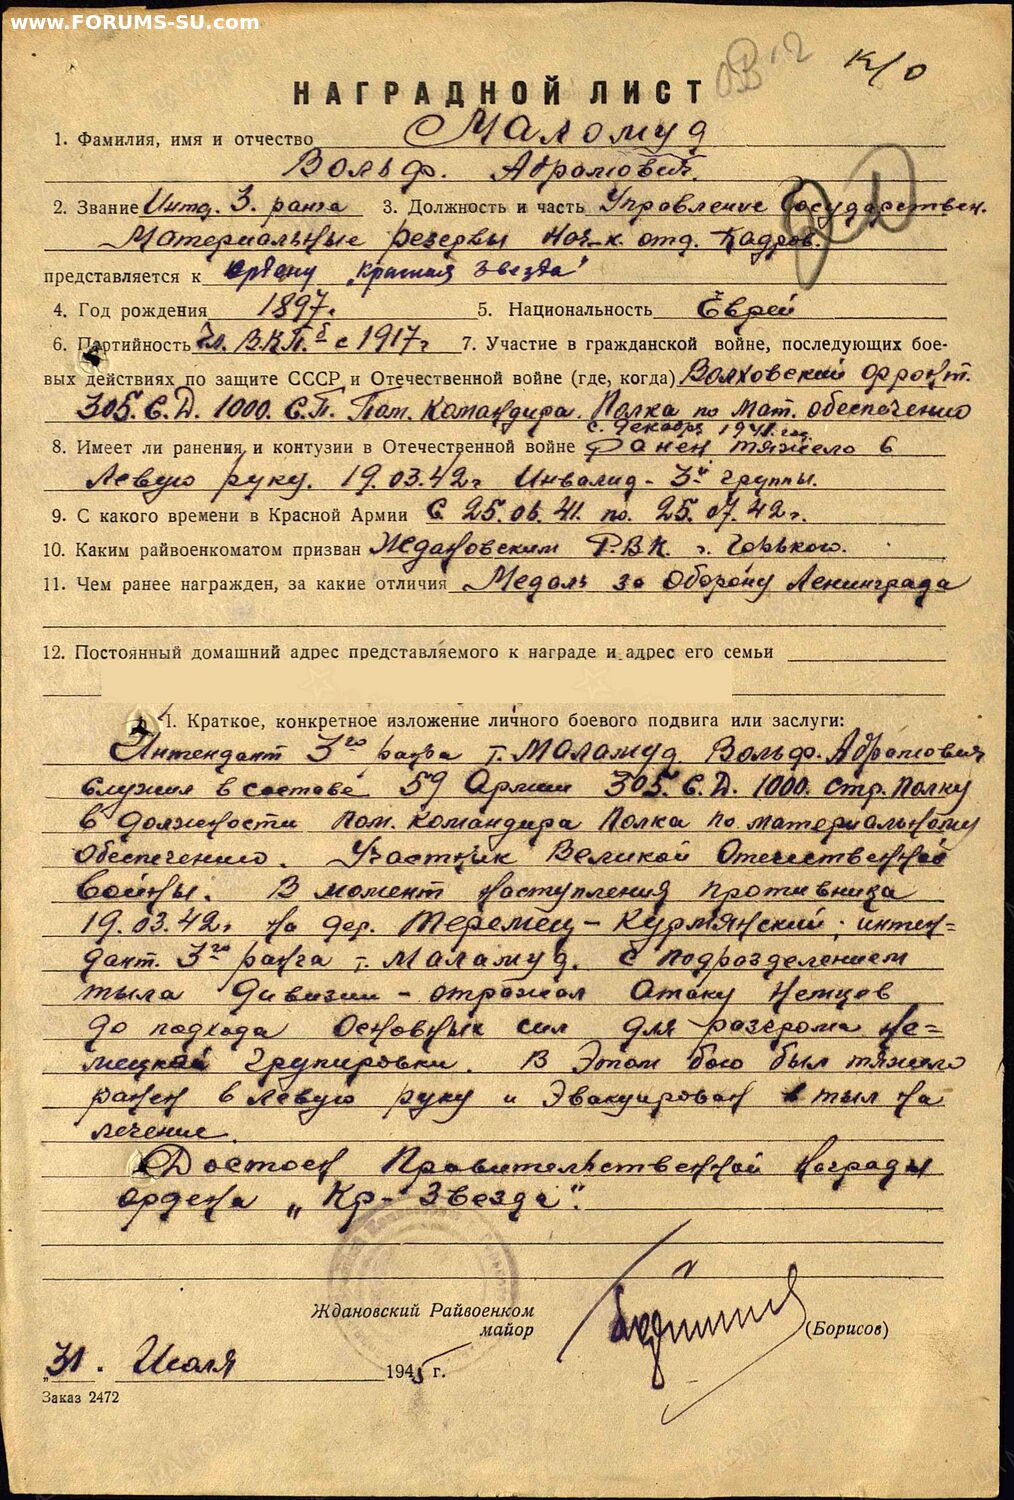 www.FORUMS-SU.com
К/О
НАГРАДНОЙ ЛИСТ
1. Фамилия, имя и отчество Маломуд
Вольф. Абрамович.
2. Звание Интд. 3. ранга 3. Должность и часть Управление Государствен.
Материальные резервы Нач-к. отд. Кадров.
представляется к ордену "Красная звезда"
4. Год рождения 1897г. 5. Национальность Еврей
6. Партийность Чл. ВКПб с 1917г 7. Участие в гражданской войне, последующих бое-
вых действиях по защите СССР и Отечественной войне (где, когда) Волховский фронт.
305. С.Д. 1000. С.П. Пом. Командира. Полка по мат. обеспечению
с. декабря 1941. год
8. Имеет ли ранения и контузии в Отечественной войне Ранен тяжело в
Левую руку. 19.03.42г Инвалид - 3й группы.
9. С какого времени в Красной Армии С 25.06.41. по. 25.07.42г.
10. Каким райвоенкоматом призван Ждановским Р.В.К. г. Горького.
11. Чем ранее награжден, за какие отличия Медаль за Оборону Ленинграда
12. Постоянный домашний адрес представляемого к награде и адрес его семьи
1. Краткое, конкретное изложение личного боевого подвига или заслуги:
Интендант 3го ранга т. Маламуд. Вольф. Абрамович
служил в составе 59 Армии 305. С.Д. 1000. стр. Полку
в должности пом. командира Полка по материальному
обеспечению. Участник Великой Отечественной
войны. В момент наступления противника
19.03.42г на дер. Теремец - Курлянский, интен=
дант. 3го ранга т. Маламуд. с подразделением
тыла дивизии - отражал Атаку немцев
до подхода Основных сил для разгрома не=
мецкой групировки. В Этом бою был тяжело
ранен в левую руку и Эвакуирован в тыл на
лечение.
Достоен Правительственной награды
ордена "Кр- Звезда".
Ждановский Райвоенком
майор
(Борисов)
„31. Июля 1945 г.
Заказ 2472